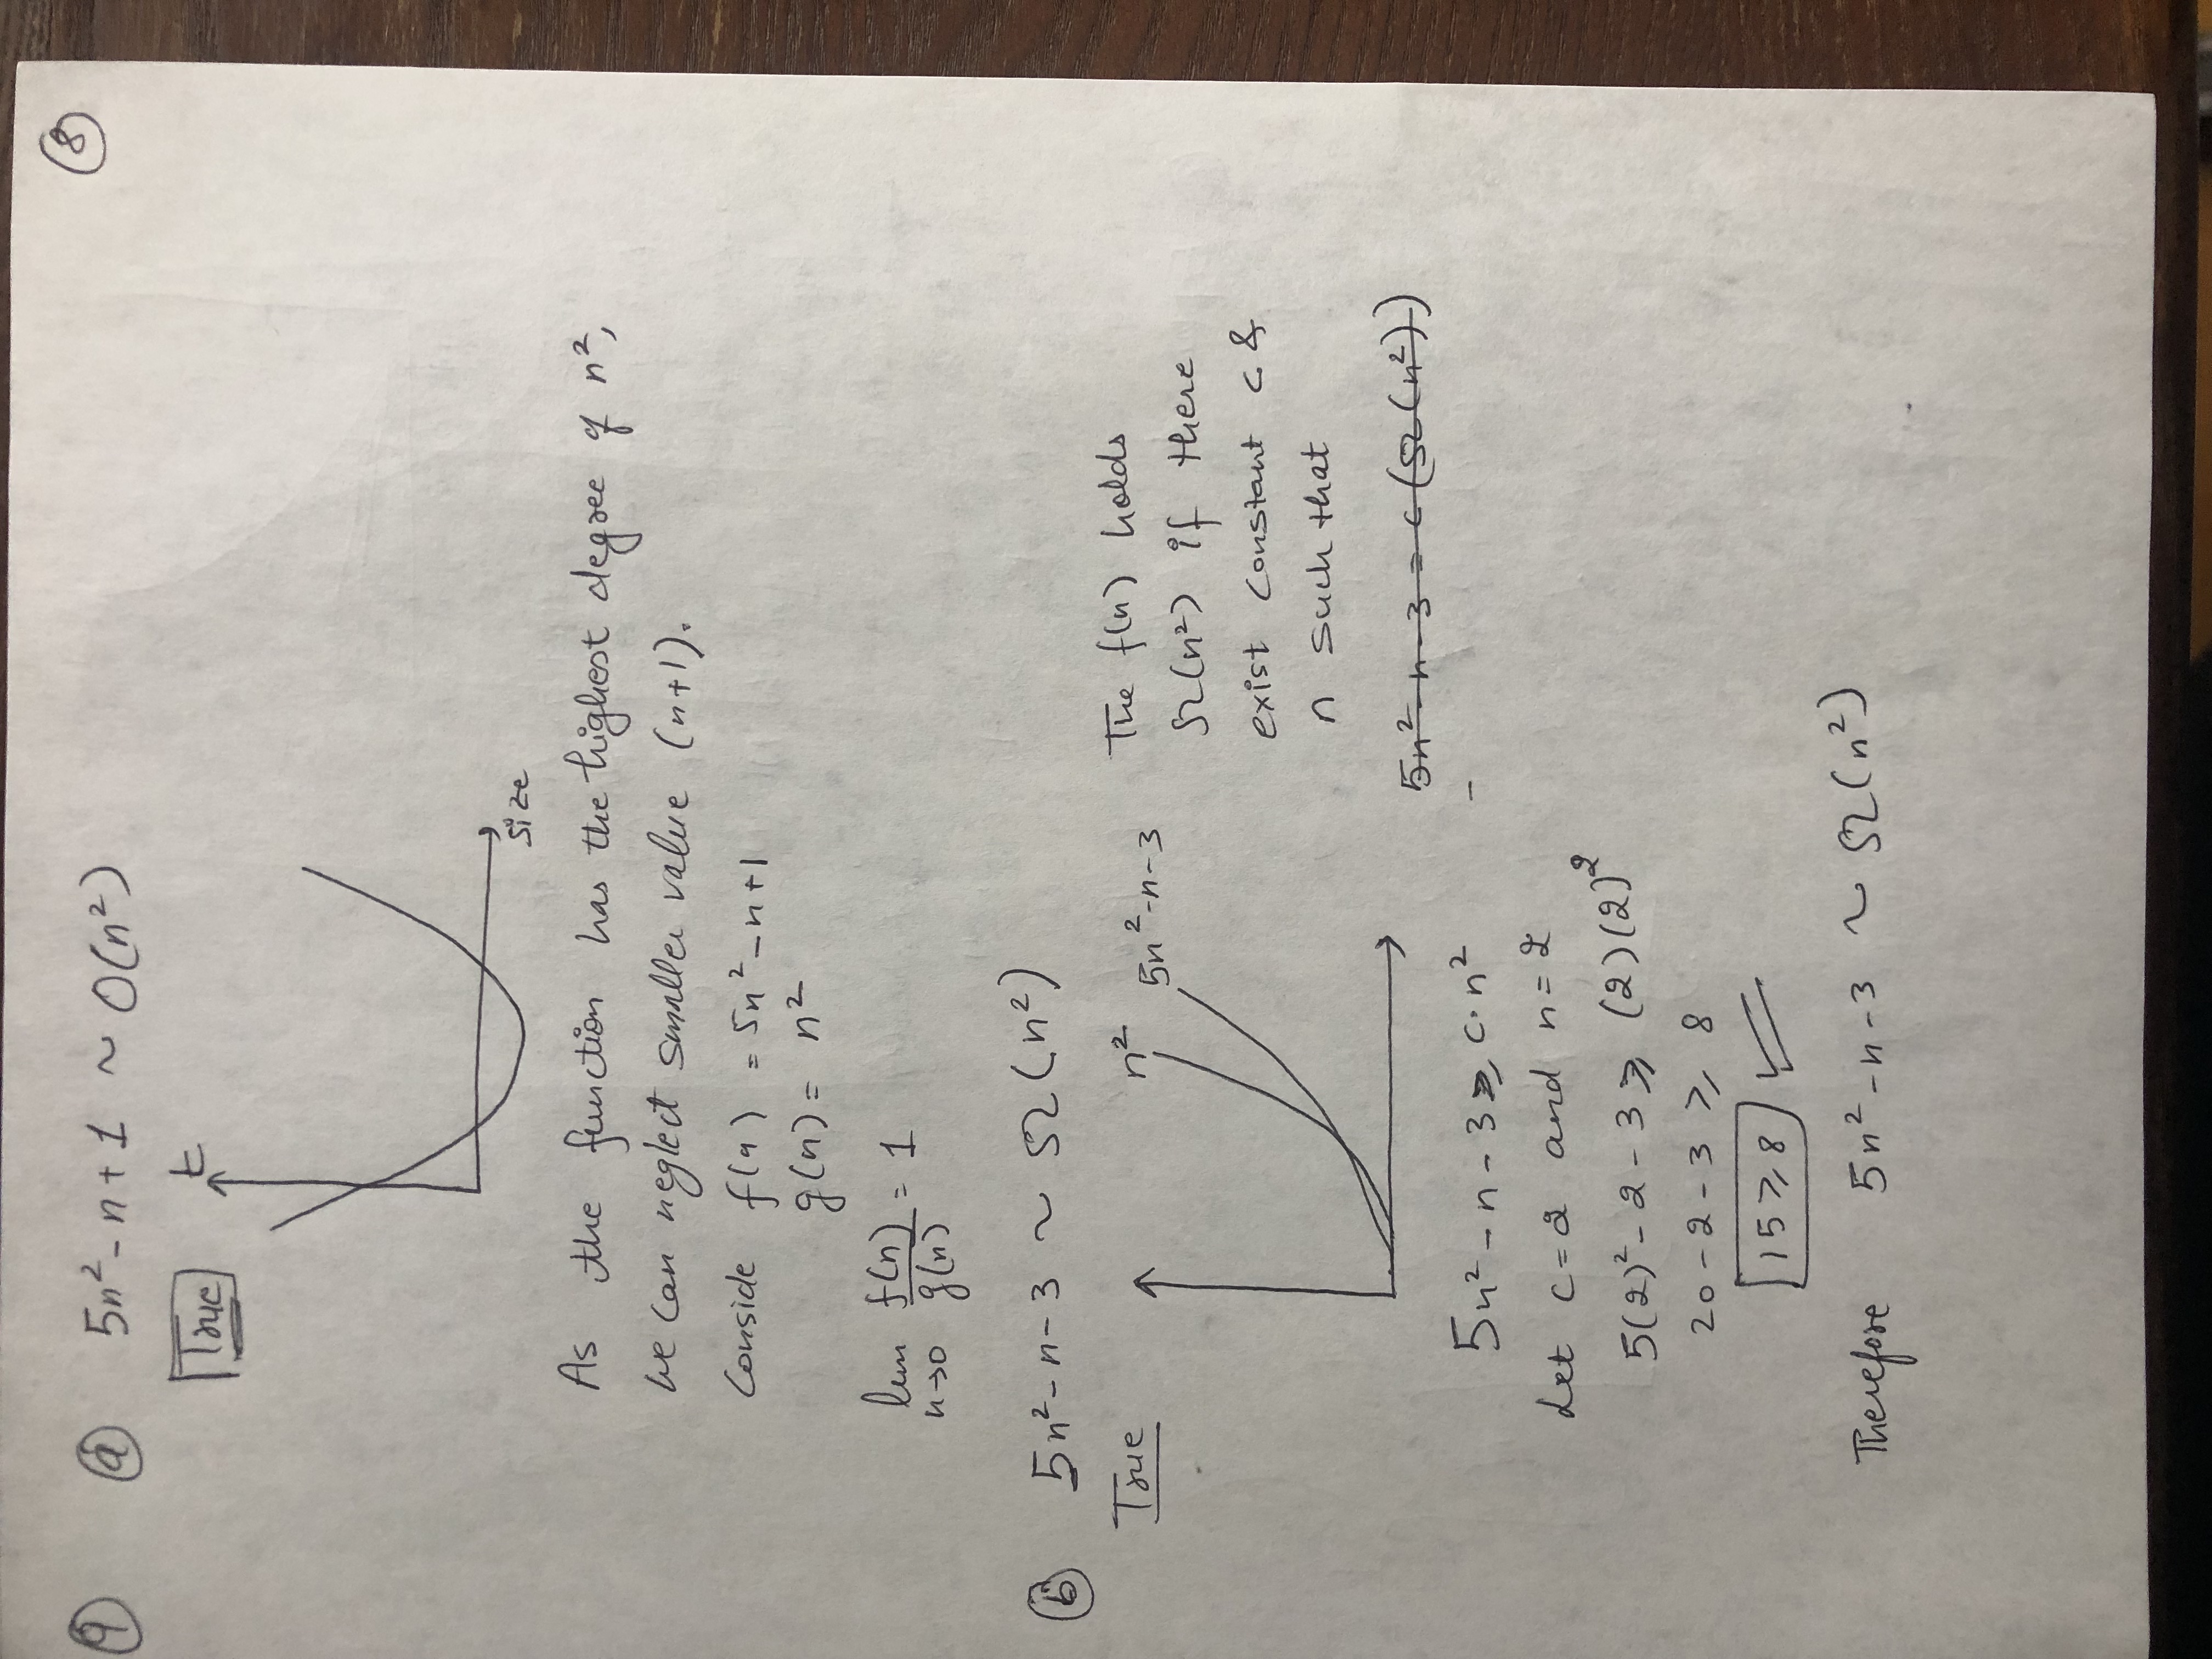 8
9 a 5n² - n + 1 ~ O(n²)
True
t
size
As the function has the highest degree of n²,
we can neglect smaller value (n+1).
Conside f(n) = 5n² - n + 1
g(n) = n²
lim n→0 f(n)/g(n) = 1
b 5n² - n - 3 ~ Ω(n²)
True
n²
5n² - n - 3
The f(n) holds
Ω(n²) if there
exist constant c &
n such that
5n² - n - 3 = c(Ω(n²))
-
5n² - n - 3 ≥ c·n²
Let c = 2 and n = 2
5(2)² - 2 - 3 ≥ (2)(2)²
20 - 2 - 3 ≥ 8
15 ≥ 8 ✓
Therefore 5n² - n - 3 ~ Ω(n²)